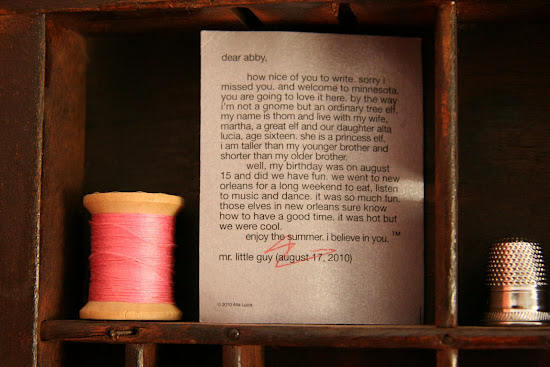 dear abby,
how nice of you to write. sorry i
missed you. and welcome to minnesota.
you are going to love it here. by the way
i'm not a gnome but an ordinary tree elf.
my name is thom and live with my wife,
martha, a great elf and our daughter alta
lucia, age sixteen. she is a princess elf.
i am taller than my younger brother and
shorter than my older brother.
well, my birthday was on august
15 and did we have fun. we went to new
orleans for a long weekend to eat, listen
to music and dance. it was so much fun.
those elves in new orleans sure know
how to have a good time. it was hot but
we were cool.
enjoy the summer. i believe in you. ™
mr. little guy (august 17, 2010)
© 2010 Alta Lucia